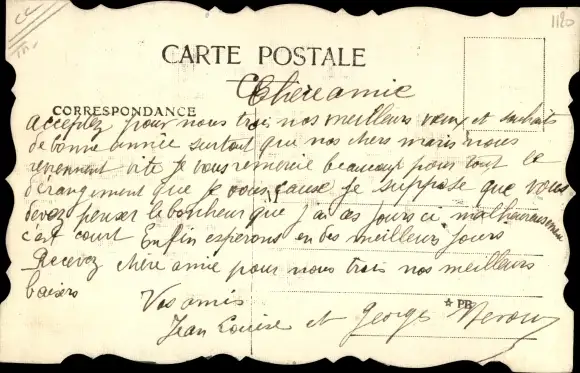 1120
CARTE POSTALE
Chère amie
CORRESPONDANCE
acceptez pour nous trois nos meilleurs vœux et souhaits
de bonne année surtout que nos chers maris nous
reviennent vite je vous remercie beaucoup pour tout ce
dérangement que je vous cause je suppose que vous
devez penser le bonheur que j'ai ces jours ci malheureusement
c'est court Enfin espérons en des meilleurs jours
Recevez chère amie pour nous trois nos meilleurs
baisers
Vos amis
PB
Jean Louise et Georges